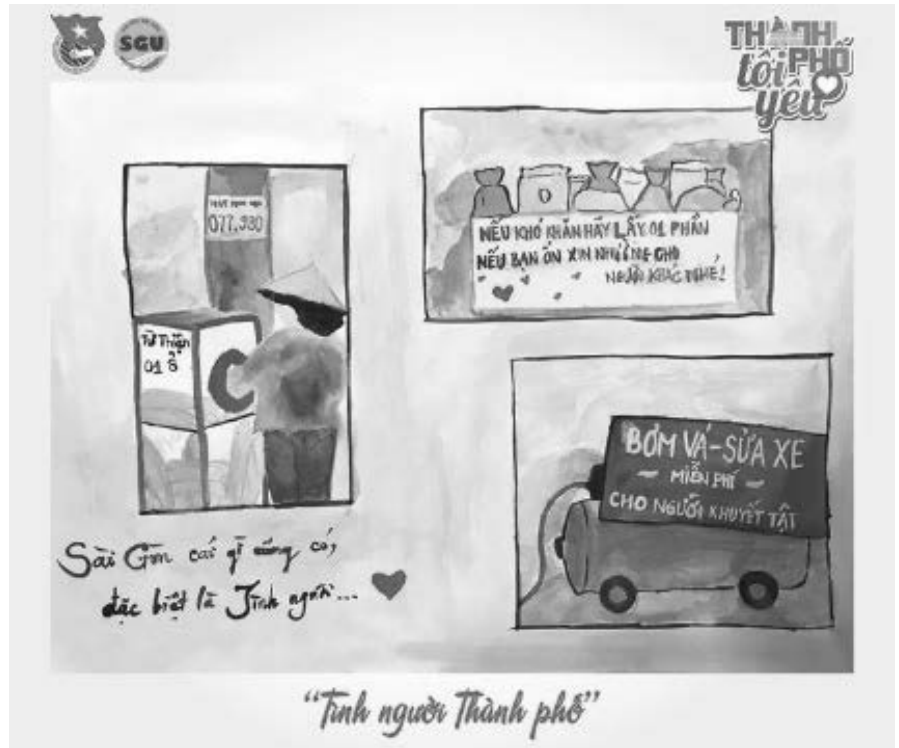 SGU
THÀNH
PHỐ
tôi
yêu
077.980
Từ Thiện
01 ổ
NẾU KHÓ KHĂN HÃY LẤY 01 PHẦN
NẾU BẠN ỔN XIN NHƯỜNG CHO
NGƯỜI KHÁC NHÉ!
BƠM VÁ-SỬA XE
MIỄN PHÍ
CHO NGƯỜI KHUYẾT TẬT
Sài Gòn cái gì cũng có,
đặc biệt là Tình người...
"Tình người Thành phố"